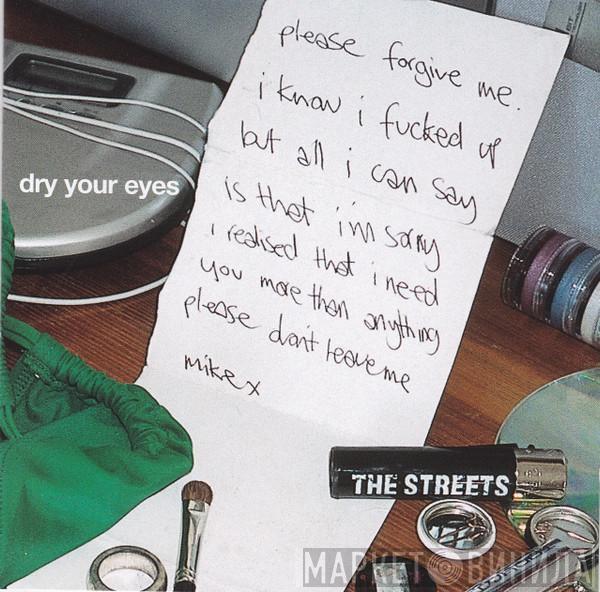 please forgive me.
i know i fucked up
but all i can say
is that i'm sorry
i realised that i need
you more than anything
please don't leave me
mike x
dry your eyes
THE STREETS
МАРКЕТ ВИНИЛА